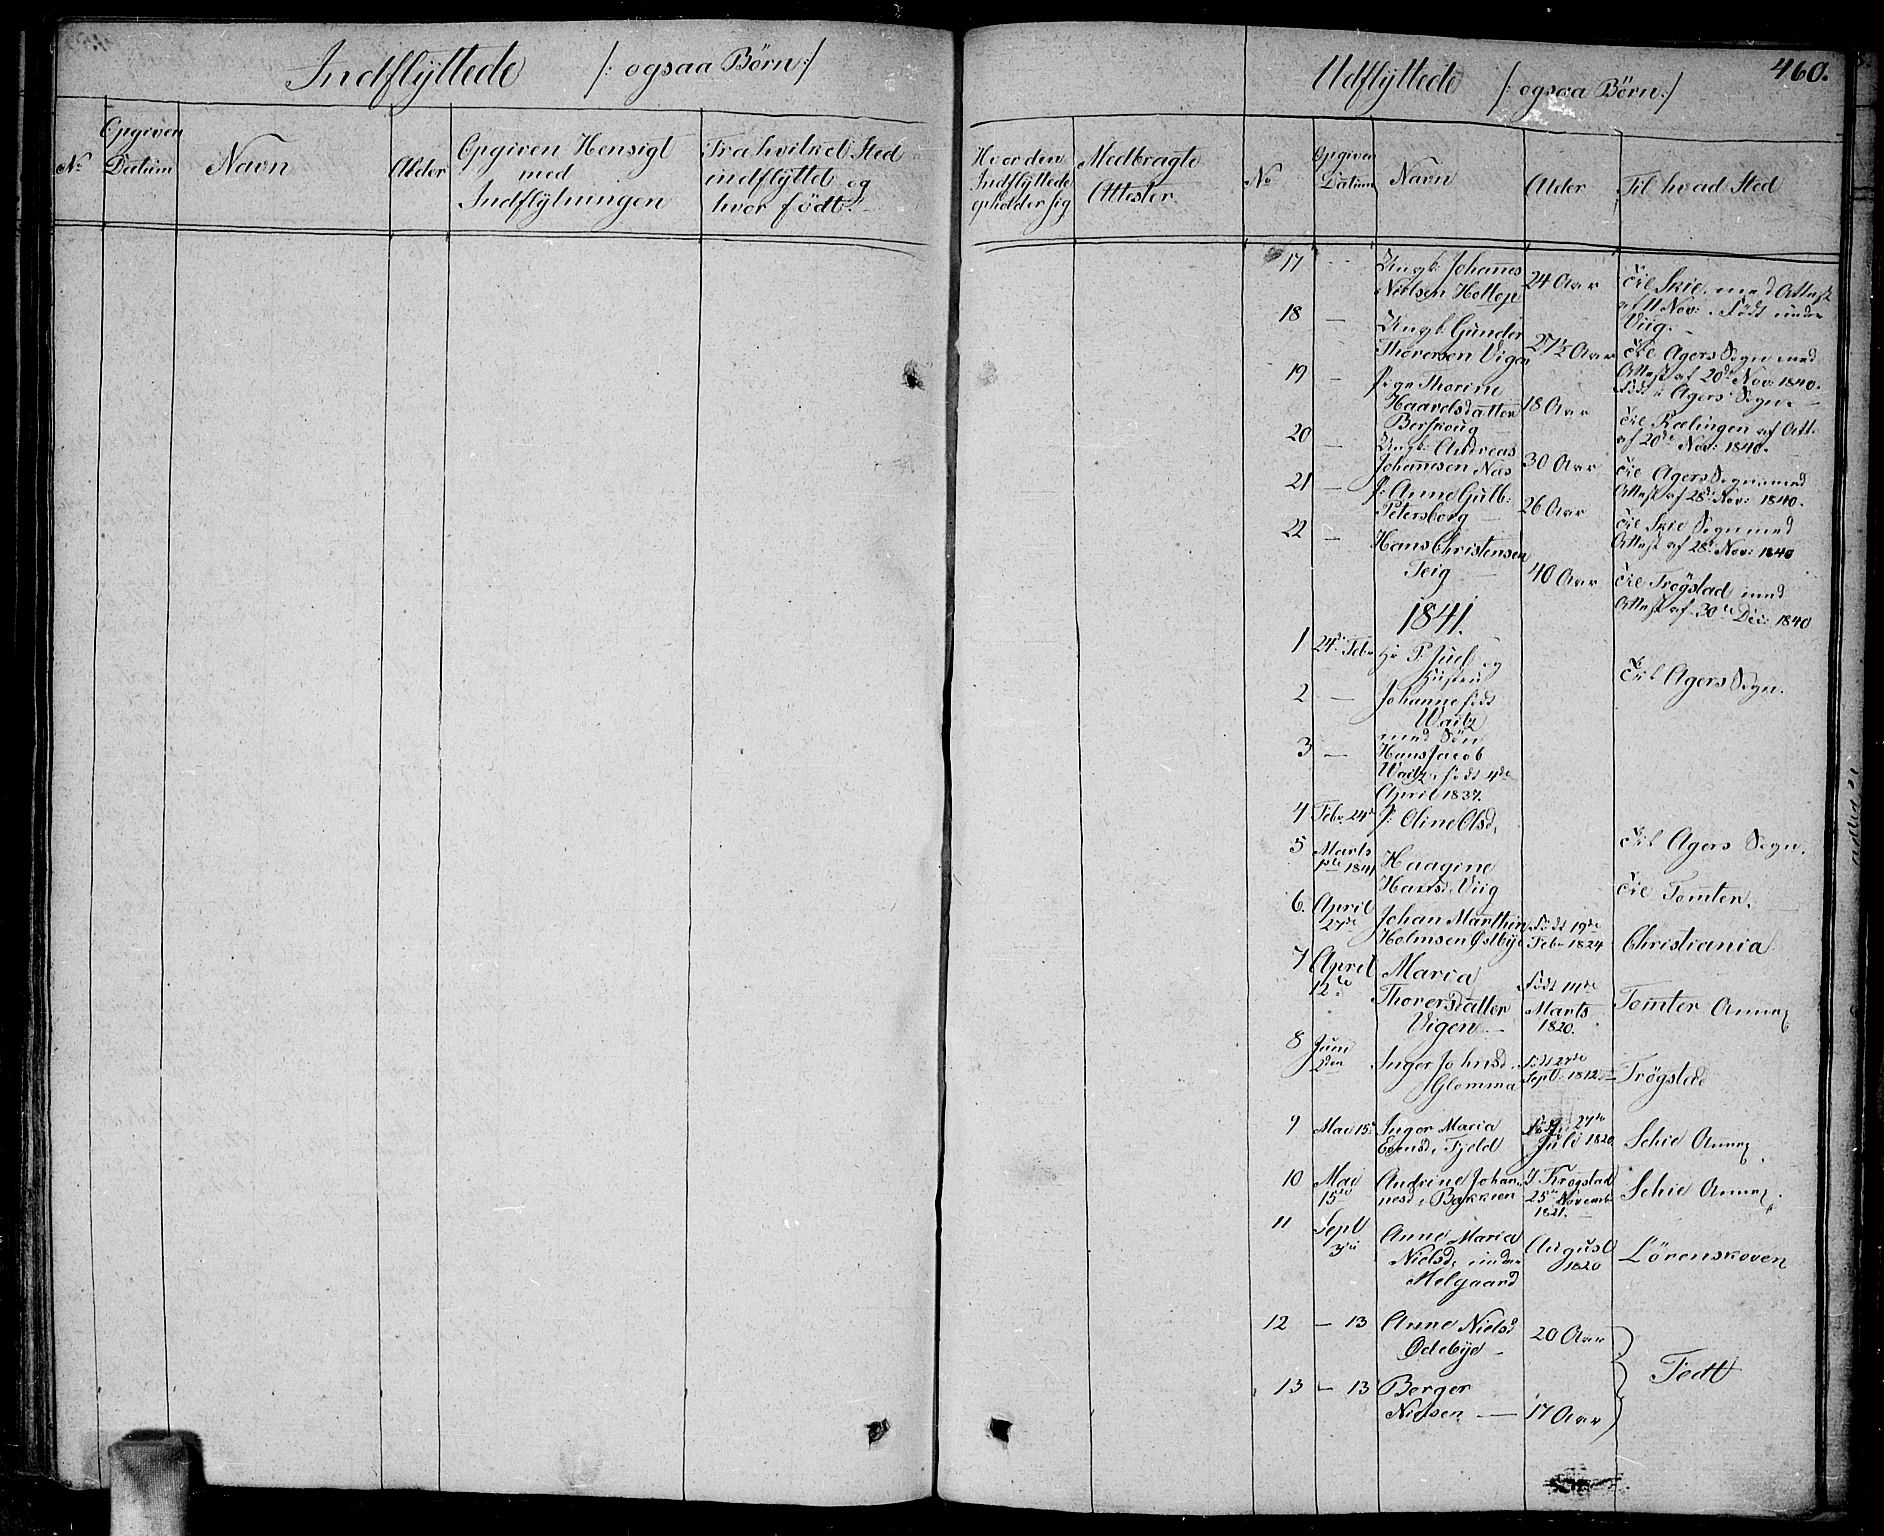 Indflyttede /: ogsaa Børn :/
No
Opgiven Datum
Navn
Alder
Opgiven Hensigt med Indflytningen
Fra hvilket Sted indflyttet og hvor født.
Hvor den Indflyttede opholder sig
Medbragte Attester
Udflyttede /: ogsaa Børn :/
460.
No
Opgiven Datum
Navn
Alder
Til hvad Sted
17 — Ungk: Johannes Nielsen Holtop 24 Aar til Skie, med Attest af 11 Nov: . Født under Viig.
18 — Ungk: Gunder Thorersen Vigen 27 1/2 Aar til Agers Sogn med Attest af 20de Nov: 1840. Født i Agers Sogn. —
19 — Pige Thorine Haarelsdatter Berskoug 18 Aar til Rælingen af Att. af 20de Nov: 1840.
20 — Ungk: Andreas Johannesen Næs 30 Aar til Agers Sogn med Attest af 28de Nov: 1840.
21 — P: Anne Gulb: Petersborg — 26 Aar til Skie Sogn med Attest af 28de Nov: 1840
22 — Hans Christensen Teig — 40 Aar til Trögstad med Attest af 30te Dec: 1840
1841.
1 24de Febr Hr P. Juel og Hustru til Agers Sogn.
2 — Johanne født Waitz med Søn
3 — Hans Jacob Waitz, født 4de April 1837.
4 Febr. 24de P: Oline Olsd. til Agers Sogn.
5 Marts 1ste 1841 Haagine Hansd. Viig til Tomter.
6. April 27de Johan Marthin Holmsen Østbye Født 19de Febr 1824 Christiania
7 April 12te Maria Thorersdatter Vigen — Født 14de Marts 1820. Tomter Annex
8 Juni 2den Inger Johnsd. Glomma Født 27de Septb. 1812. — Trögstad
9 Mai 15de Inger Maria Evensd. Fjeld Født 27de Juli 1820. Schie Annex
10 Mai 15de Andrine Johannesd. Bakken I Krogstad 25de Novemb 1821. Schie Annex.
11 Septb 3die Anne Maria Nielsd. under Melgaard August 1820 Lörenskoven
12 — 13 Anne Nielsd Ødebyd — 20 Aar
Fedt
13 — 13 Berger Nielsen — 17 Aar